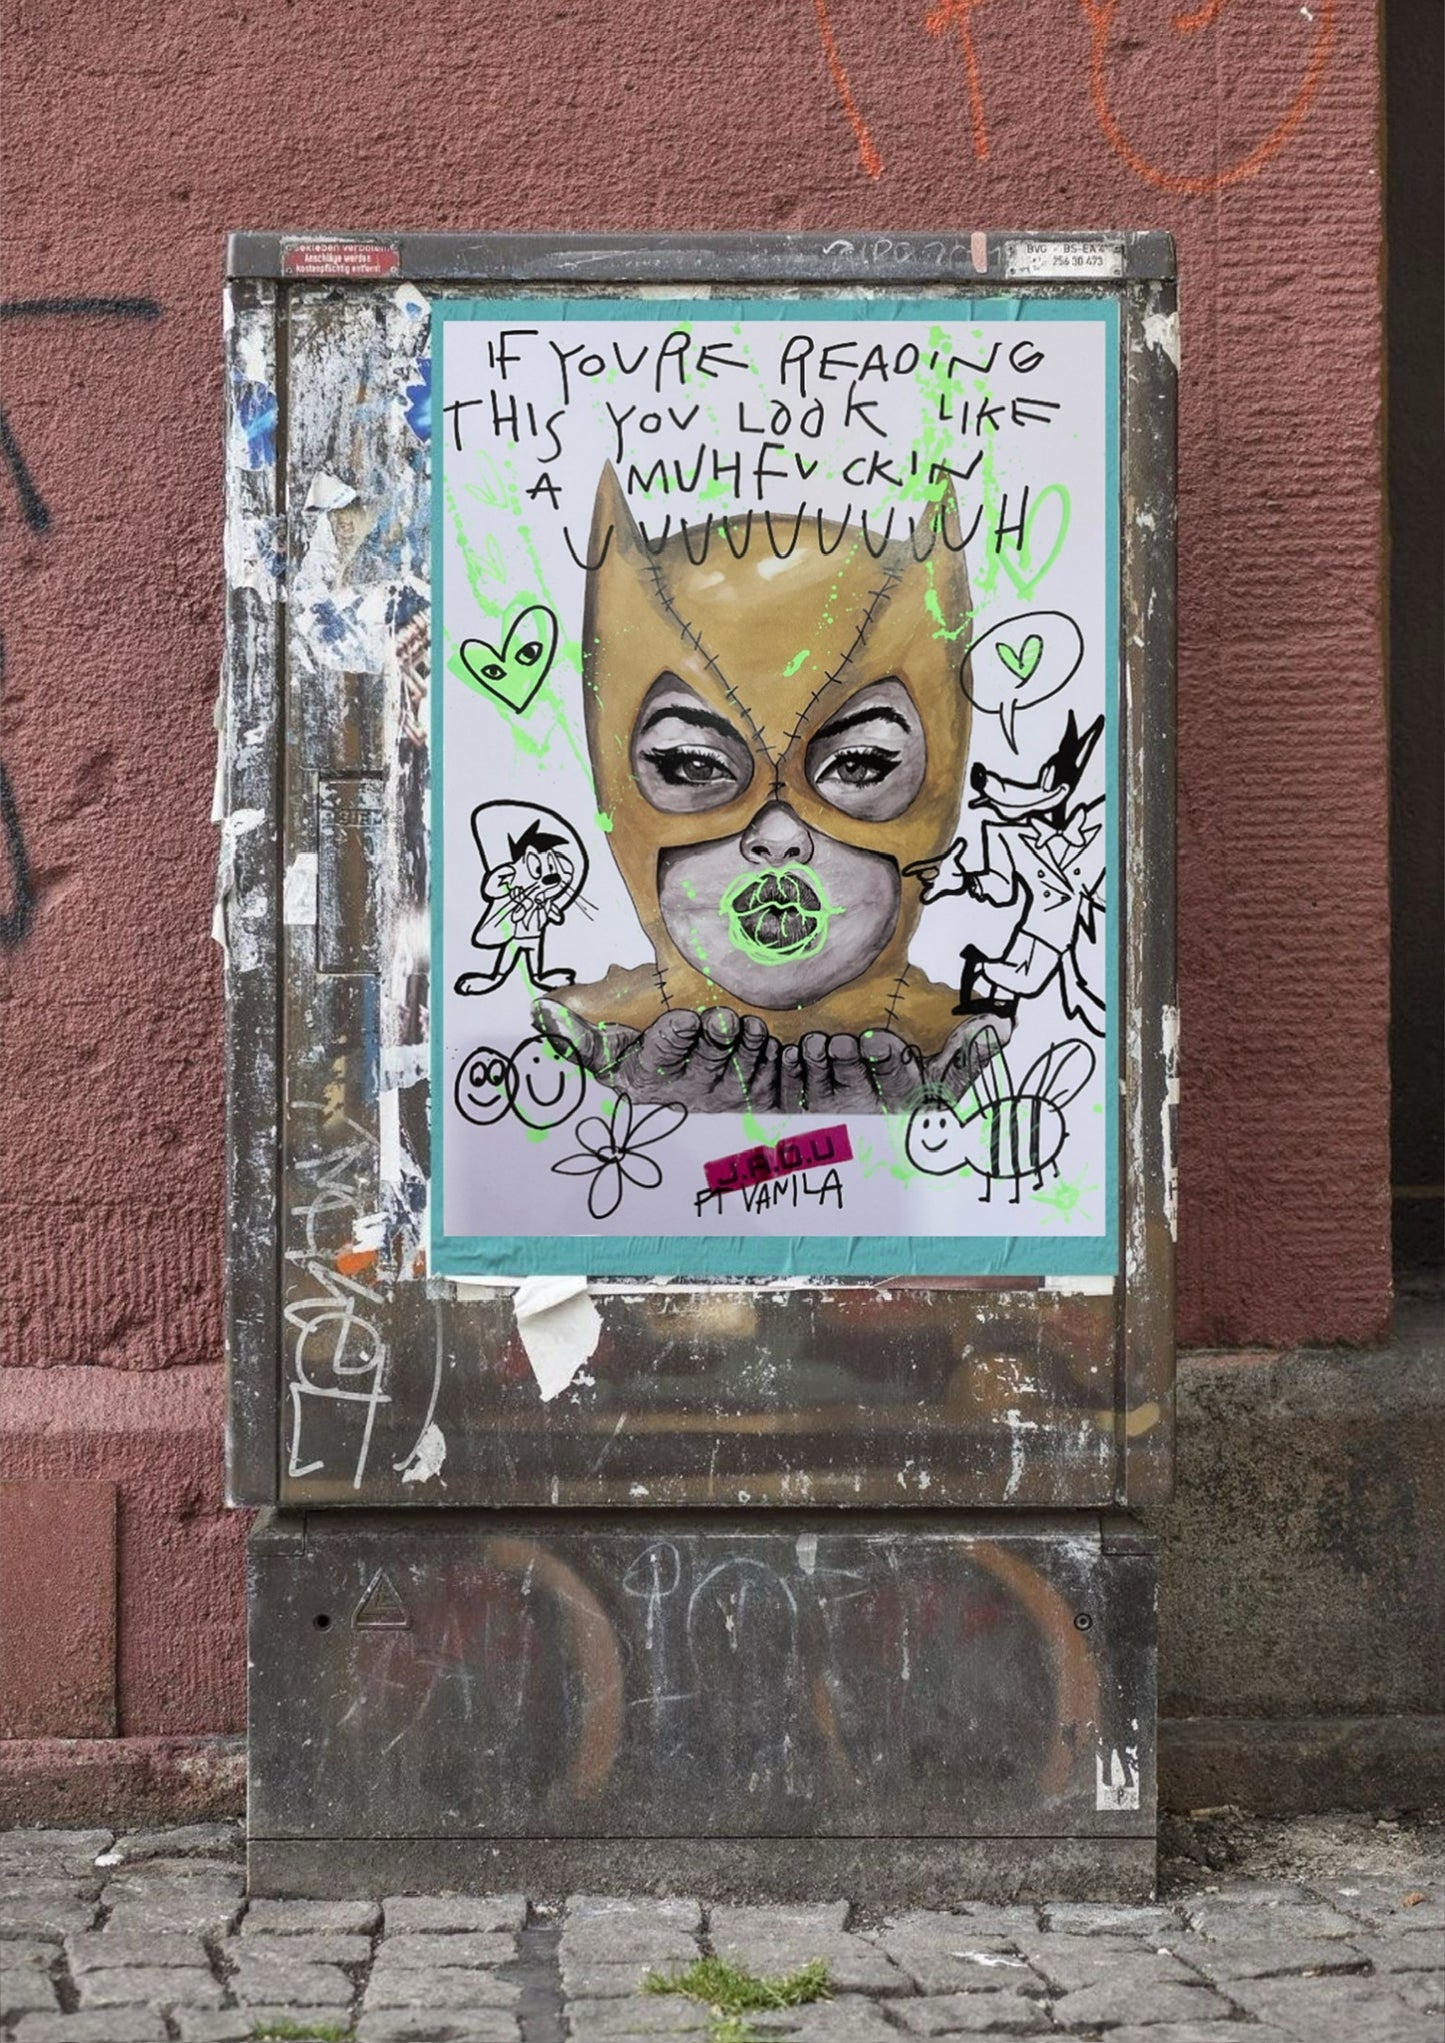 bekleben verboten
Anschläge werden
kostenpflichtig entfernt
BVG - BS-EA 4
256 30 473
IF YOURE READING
THIS YOU LOOK LIKE
A MUHFUCKIN
UUUUUUUUUUH
J.A.D.U
FT VANILA